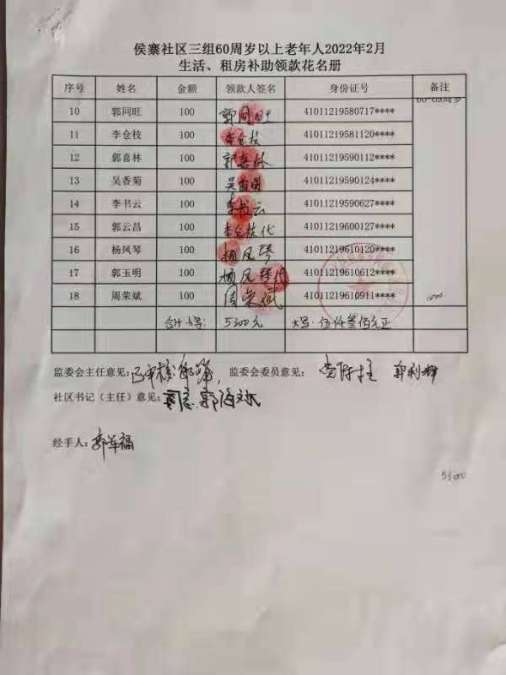 侯寨社区三组60周岁以上老年人2022年2月
生活、租房补助领款花名册
序号 姓名 金额 领款人签名 身份证号 备注
10 郭同旺 100 郭同旺 41011219580717****
11 李仓枝 100 李仓枝 41011219581120****
12 郭喜林 100 郭喜林 41011219590112****
13 吴香菊 100 吴香菊 41011219590124****
14 李书云 100 李书云 41011219590627****
15 郭云昌 100 41011219600127****
16 杨凤琴 100 杨凤琴 41011219610120****
17 郭玉明 100 杨凤琴代 41011219610612****
18 周荣斌 100 周荣斌 41011219610911****
合计 小写: 5300元 大写: 伍仟叁佰元正
监委会主任意见: 监委会委员意见:
社区书记（主任）意见:
经手人: 郭年福
5300